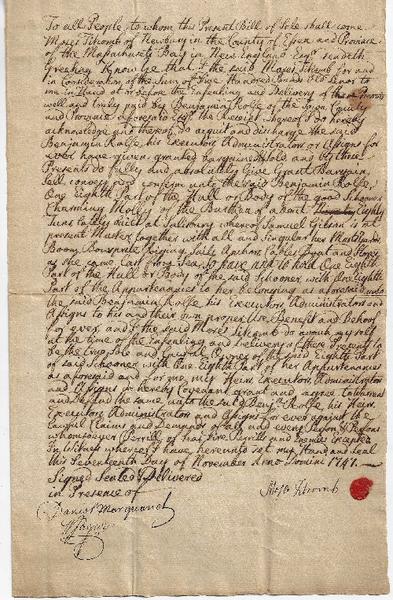 To all People to whom this Present Bill of Sale shall come
Moses Titcomb of Newbury in the County of Essex and Province
of the Massachusets Bay in New England Esqr. sendeth
Greeting Know ye that I the said Moses Titcomb for and
in Consideration of the sum of Five Hundred Pounds old Tenor to
me in Hand at or before the Ensealing and Delivery of
well and truly paid by Benjamin Rolfe of the same County
and Province aforesaid Esqr. the Receipt whereof I do hereby
acknowledge and thereof do acquit and discharge the said
Benjamin Rolfe, his Executors Administrators or Assigns for
ever have given, granted bargained & sold and by these
Presents do fully and absolutely Give Grant Bargain,
Sell convey and confirm unto the said Benjamin Rolfe,
One Eighth Part of the Hull or Body of the good Schooner
Charming Molly of the Burthen of about Eighty
Tuns lately built at Salisbury whereof Samuel is at
present Master together with all and Singular her Masts Yards
Boom Bowspritt Riging Sails Anchors Cables Boat and Stores
as she came last from Sea, To have and to hold One Eighth
Part of the Hull or Body of the said Schooner with One Eighth
Part of the Appurtenances to her belonging as aforesaid unto
the said Benjamin Rolfe his Executors Administrators and
Assigns to his and their own proper Use Benefit and Behoof
for ever, and I the said Moses Titcomb do avouch my self
at the time of the Ensealing and Delivery of these Presents to
be the true sole and Lawful Owner of the said Eighth Part
of said Schooner with One Eighth Part of her Appurtenances
as aforesaid and for me, my Heirs Executors Administrators
and Assigns do hereby Covenant grant and agree to Warrant
and Defend the same unto the said Benja. Rolfe, his Heirs
Executors Administrators and Assigns for ever against the
Lawful Claims and Demands of all and every Person & Persons
whomsoever (Perrills of Seas Fire Perrills and Enemies excepted
In Witness whereof I have hereunto set my Hand and Seal
this Seventeenth Day of November Anno Domini 1747.
Signed Sealed & Delivered
in Presence of
Moses Titcomb
Daniel Marquand